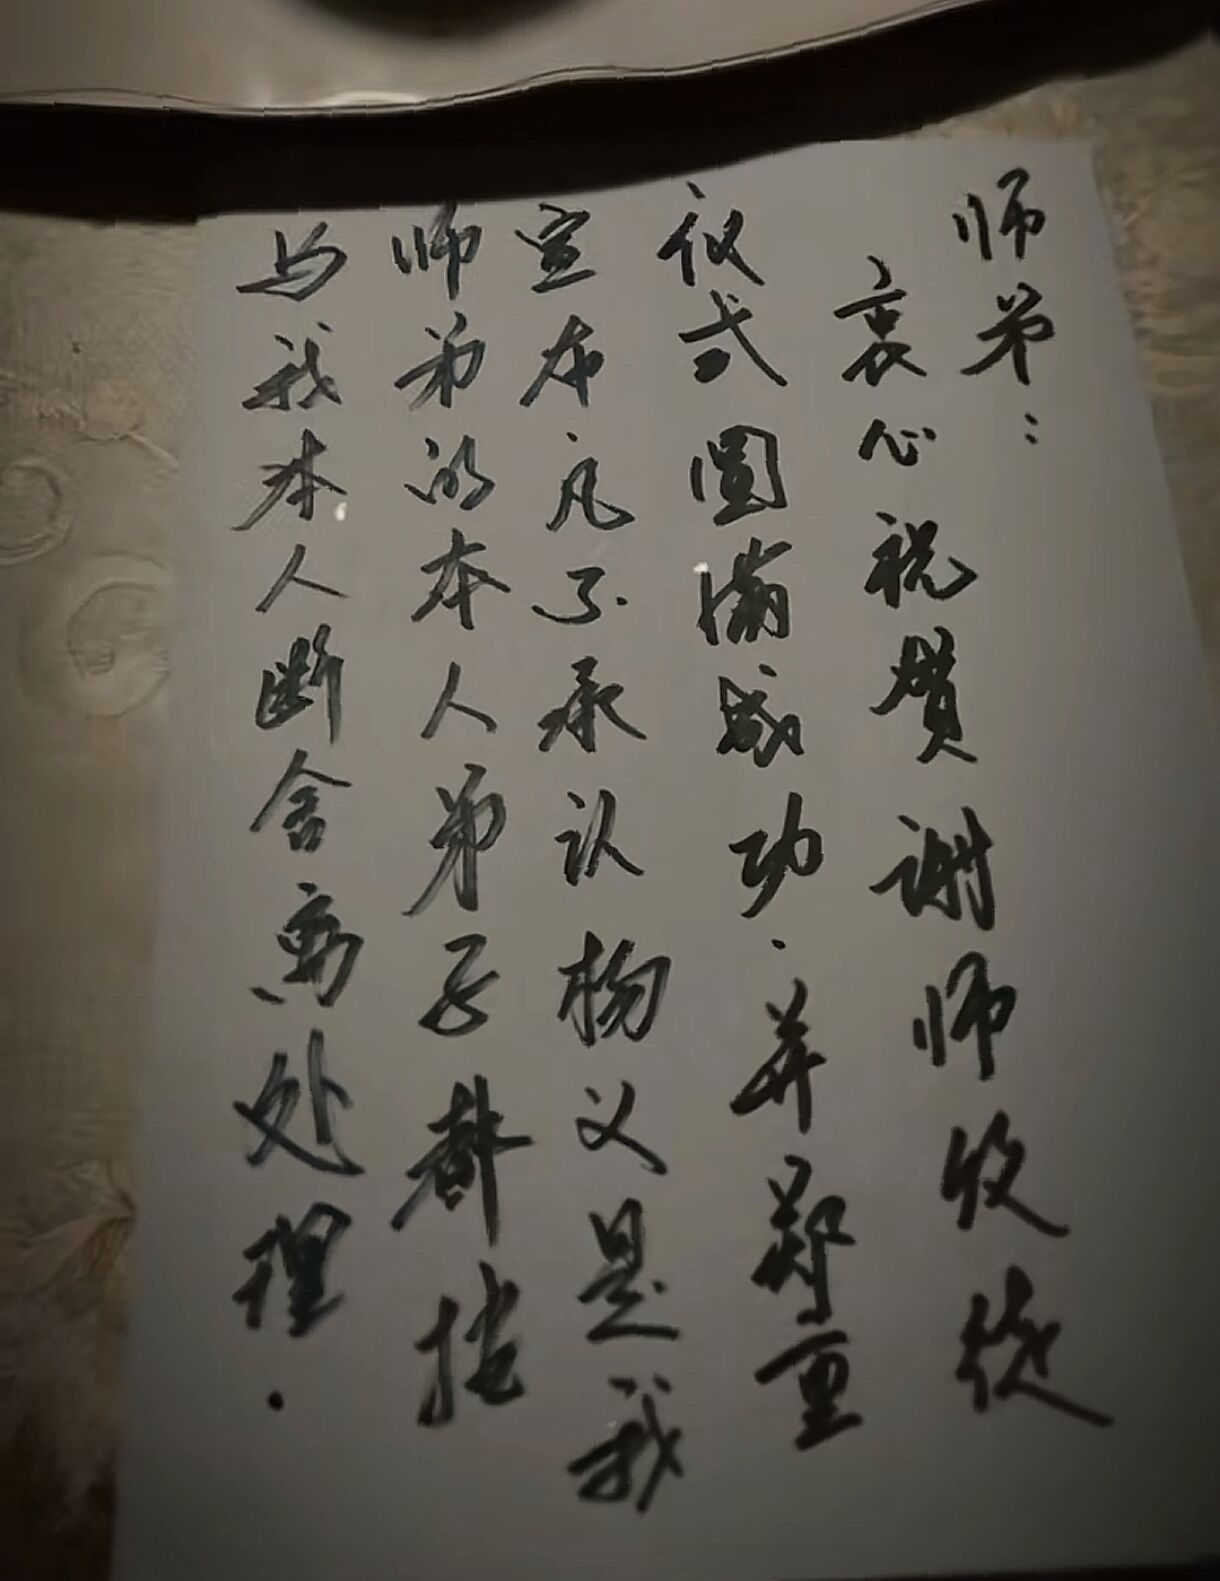 师弟：
衷心祝贺谢师收徒
仪式圆满成功.并郑重
宣布.凡不承认杨义是我
师弟的本人弟子都按
与我本人断舍离处理.